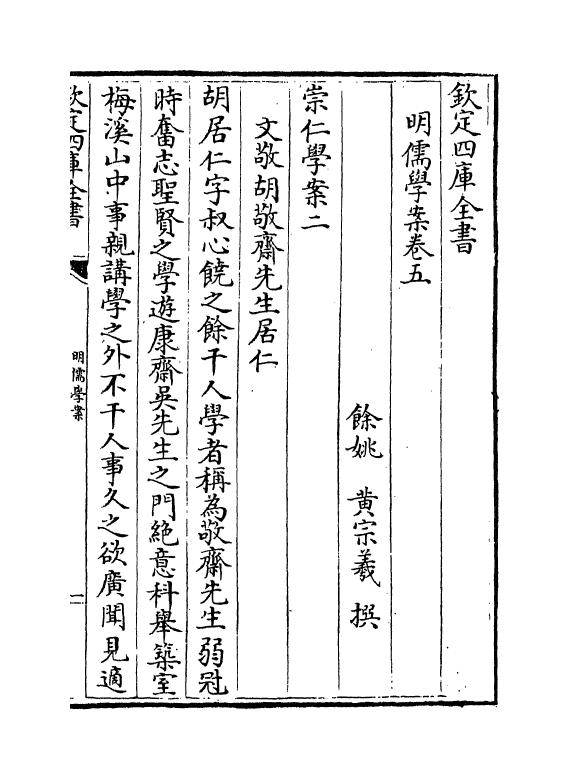 欽定四庫全書
明儒學案卷五
餘姚 黃宗羲 撰
崇仁學案二
文敬胡敬齋先生居仁
胡居仁字叔心饒之餘干人學者稱為敬齋先生弱冠
時奮志聖賢之學遊康齋吳先生之門絶意科舉築室
梅溪山中事親講學之外不干人事久之欲廣聞見適
欽定四庫全書
明儒學案
一